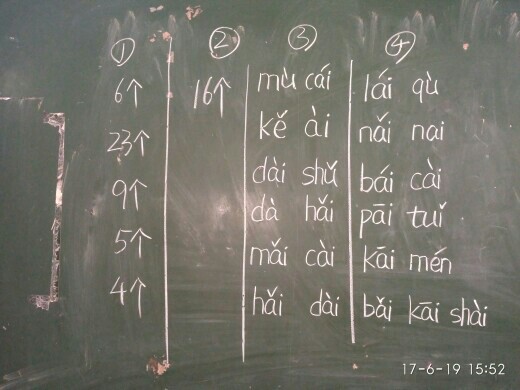 ① ② ③ ④
6个 16个 mù cái lái qù
23个 kě ài nǎi nai
9个 dài shǔ bái cài
dà hǎi pāi tuǐ
5个 mǎi cài kāi mén
4个 hǎi dài bǎi kāi shài
17-6-19 15:52